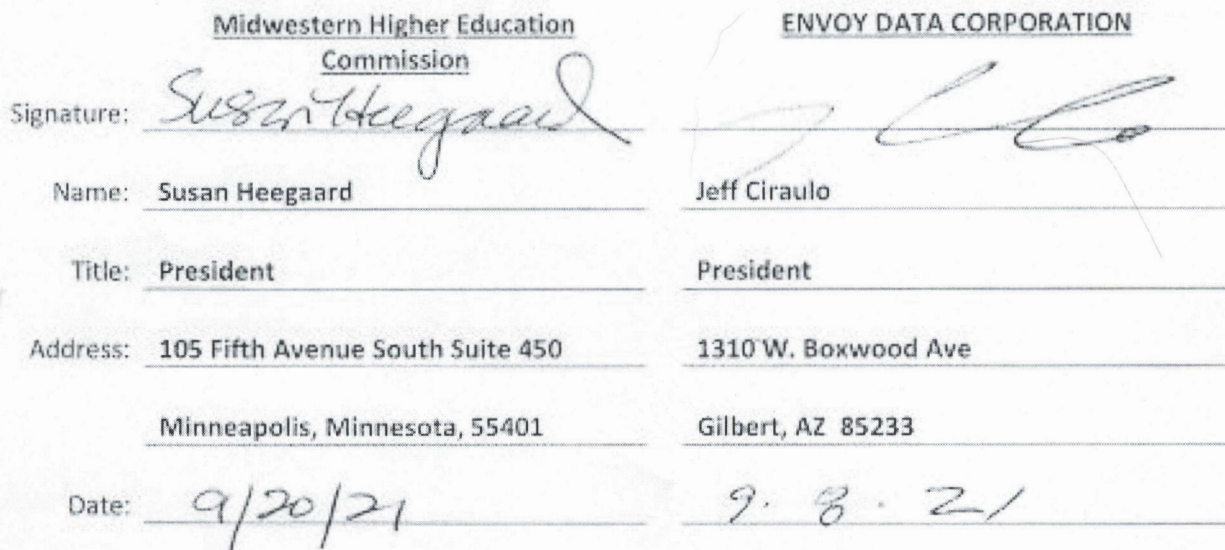 Midwestern Higher Education ENVOY DATA CORPORATION
Commission
Signature: Susan Heegaard
Name: Susan Heegaard Jeff Ciraulo
Title: President President
Address: 105 Fifth Avenue South Suite 450 1310 W. Boxwood Ave
Minneapolis, Minnesota, 55401 Gilbert, AZ 85233
Date: 9/20/21 9. 8. 21